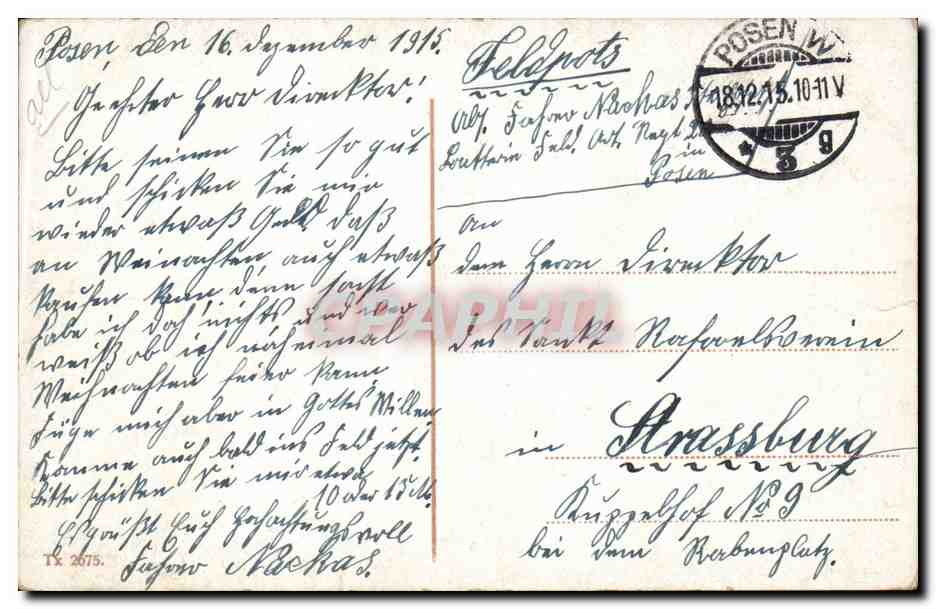 Posen, den 16. Dezember 1915.
Geehrter Herr Direcktor!
Bitte seinen Sie so gut
und schicken Sie mir
wieder etwaß Geld daß
an Weinachten auch etwaß
kaufen kann denn sonst
habe ich doch nichts und wer
weiß ob ich noheinmal
Weihnachten feier kann
Füge mich aber in Gottes Willen
komme auch bald ins Feld jetzt.
bitte schicken Sie mir etwa
10 oder 15 M.
Es grüßt Euch hochachtungsvoll
Fahrer Nackas.
Tx 2675.
Feldpots
Abs. Fahrer Nackas
Feld. Art. Regt 20
in
Posen
POSEN W.
18.12.15. 10-11 V
* 3 g
An
dem Herrn Direcktor
des Sankt Rafaelsverein
in Strassburg
Kuppelhof No 9
bei dem Rabenplatz.
CPAPHIL